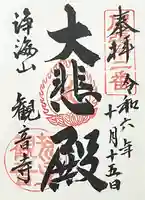 奉拝
令和六年
十月十五日
大悲殿
浄海山
観音寺